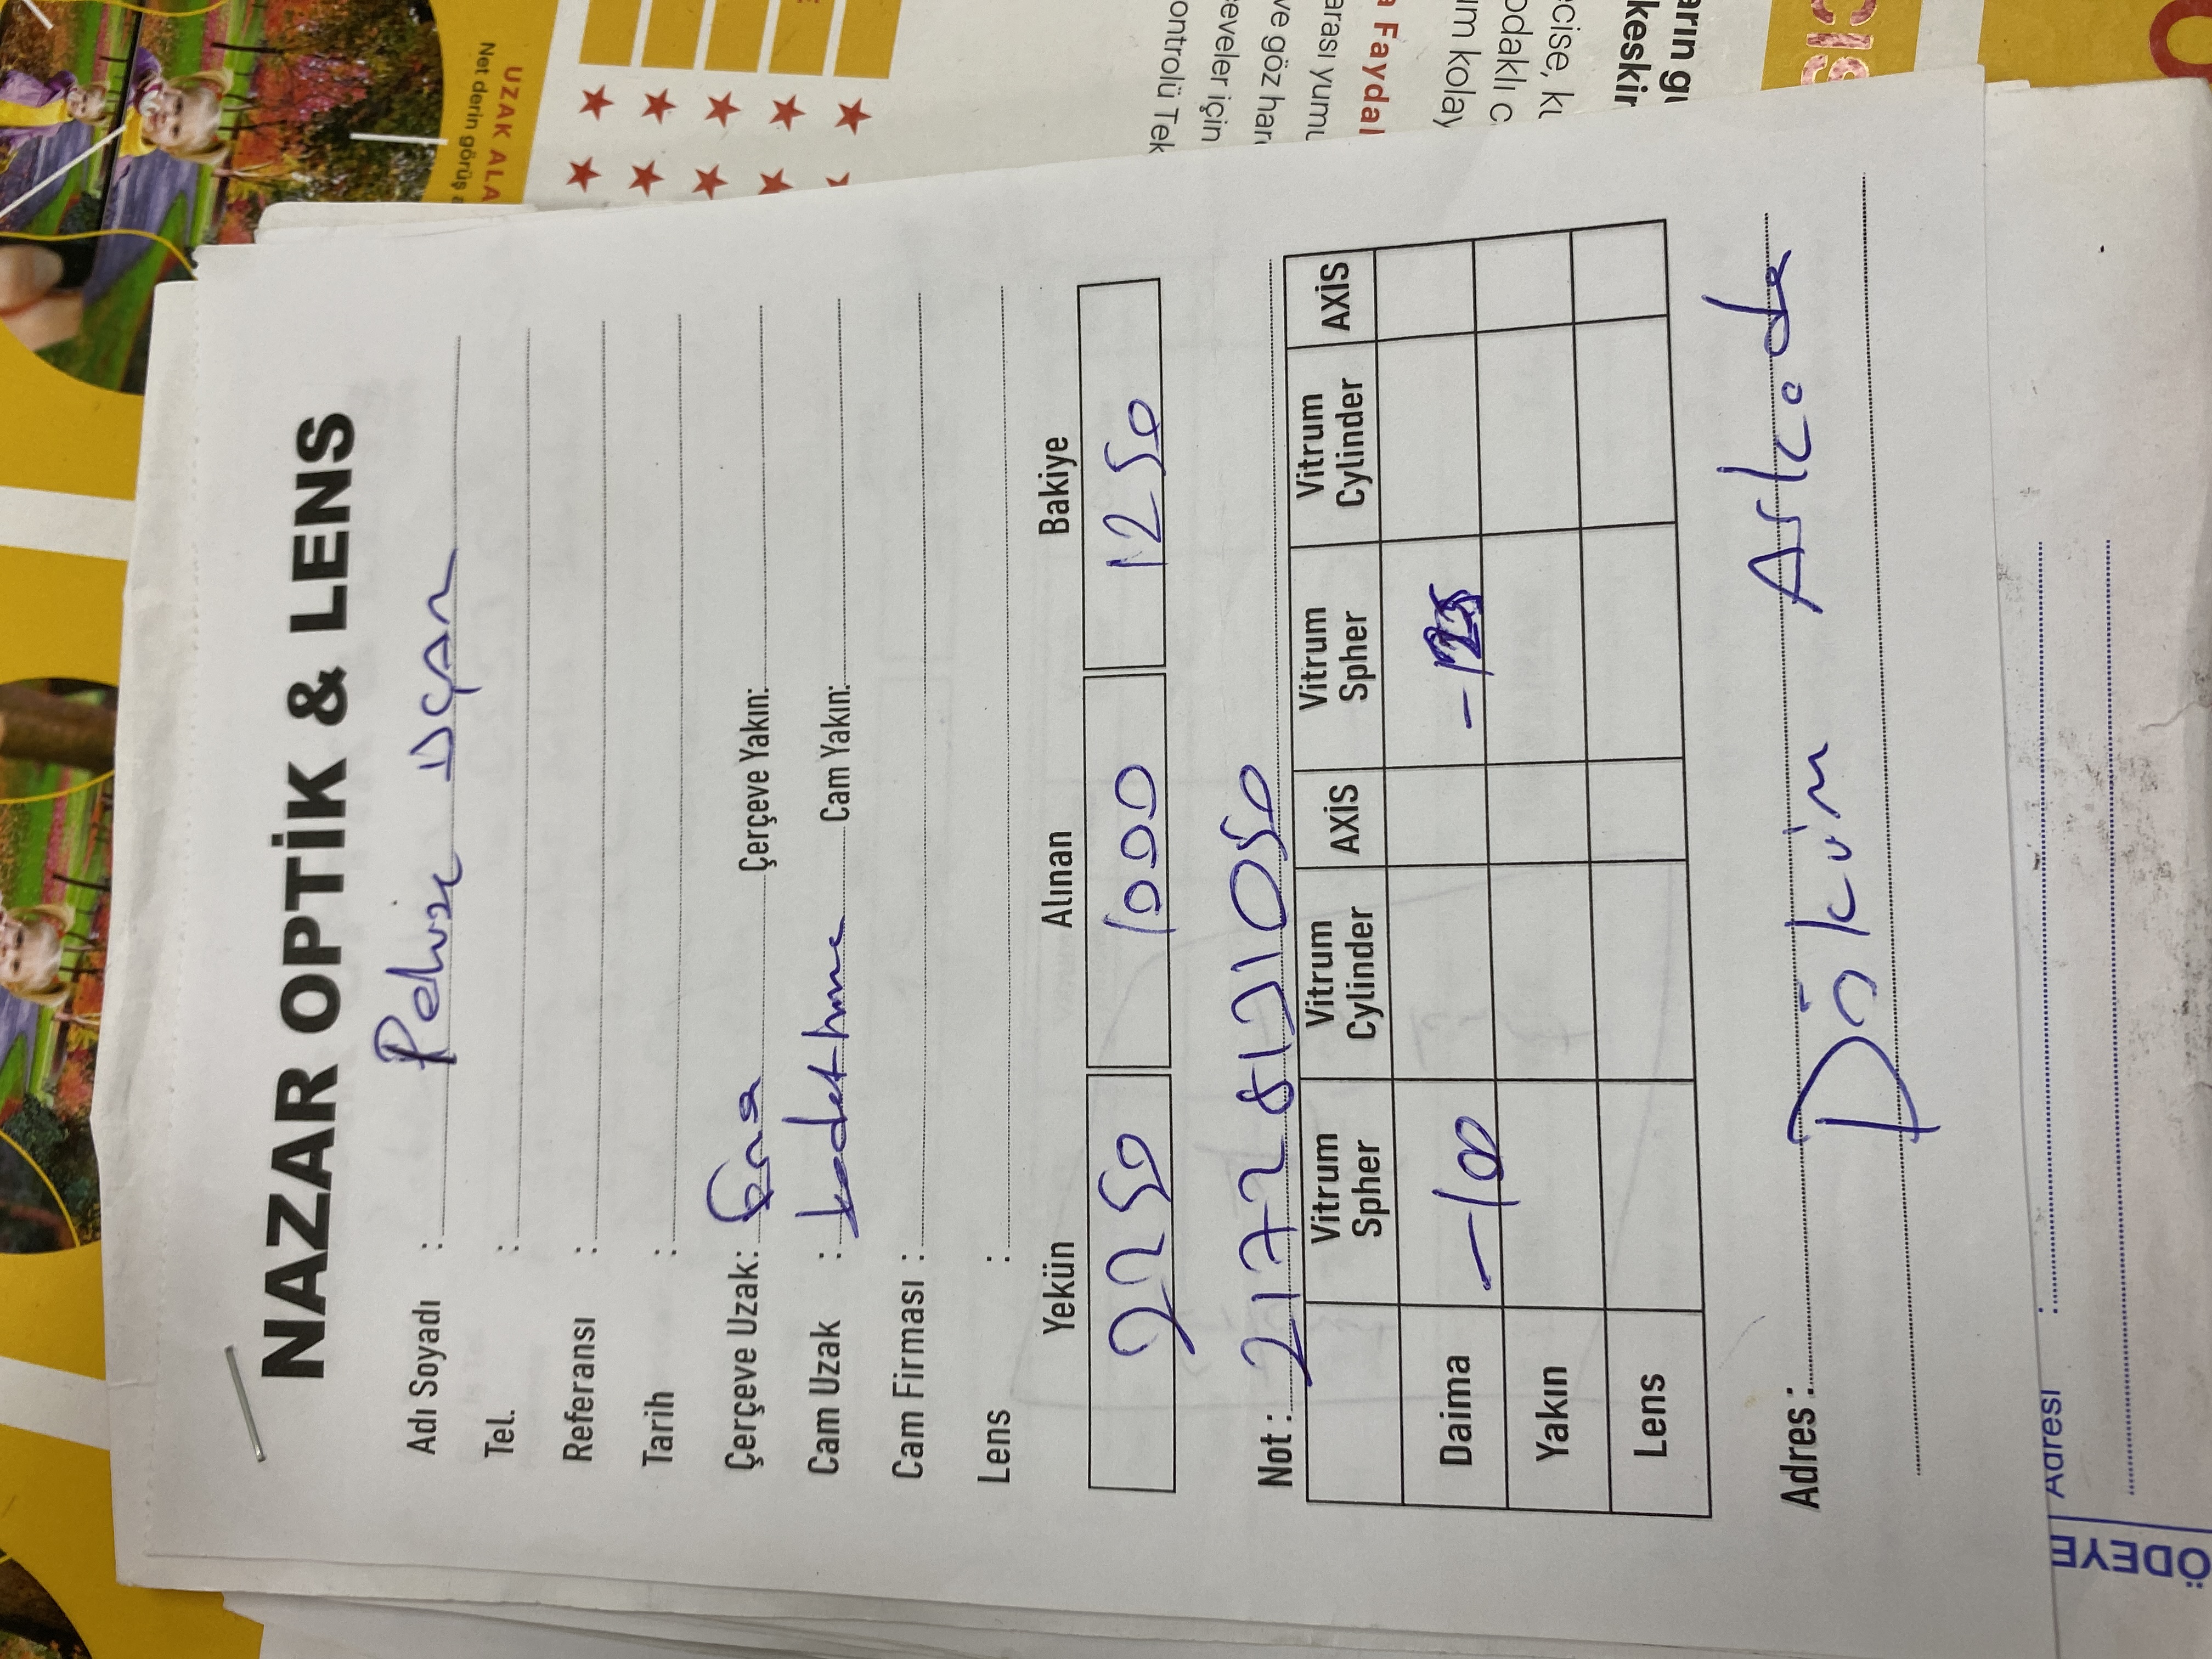 NAZAR OPTİK & LENS
Adı Soyadı :
Tel. :
Referansı :
Tarih :
Çerçeve Uzak: Çerçeve Yakın:
Cam Uzak : Cam Yakın:
Cam Firması :
Lens :
Yekün Alınan Bakiye
2250 1000 1250
Not : 21728131050
Vitrum Spher Vitrum Cylinder AXİS Vitrum Spher Vitrum Cylinder AXİS
Daima -100 -125
Yakın
Lens
Adres : Döküm Arkada
Adresi :
ÖDEYE
Net derin görüş a
UZAK ALA
ontrolü Tek
eveler için
ve göz har
arası yumu
a Faydal
ım kolay
odaklı c
ecise, ku
keskin
arın gü
CIS